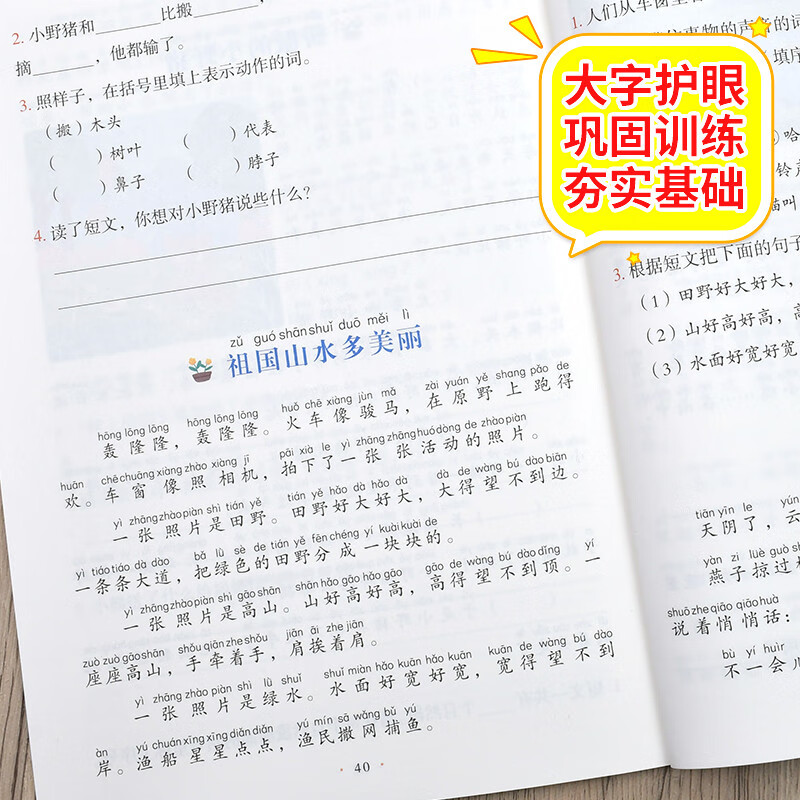 2. 小野猪和______比搬______，
摘______，他都输了。
3. 照样子，在括号里填上表示动作的词。
（搬）木头
（ ）树叶 （ ）代表
（ ）鼻子 （ ）脖子
4. 读了短文，你想对小野猪说些什么？
zǔ guó shān shuǐ duō měi lì
祖国山水多美丽
hōng lōng lōng hōng lōng lōng huǒ chē xiàng jùn mǎ zài yuán yě shang pǎo de
轰隆隆，轰隆隆。火车像骏马，在原野上跑得
huān chē chuāng xiàng zhào xiàng jī pāi xià le yì zhāng zhāng huó dòng de zhào piàn
欢。车窗像照相机，拍下了一张张活动的照片。
yì zhāng zhào piàn shì tián yě tián yě hǎo dà hǎo dà dà de wàng bú dào biān
一张照片是田野。田野好大好大，大得望不到边。
yì tiáo tiáo dà dào bǎ lǜ sè de tián yě fēn chéng yí kuài kuài de
一条条大道，把绿色的田野分成一块块的。
yì zhāng zhào piàn shì gāo shān shān hǎo gāo hǎo gāo gāo de wàng bú dào dǐng yí
一张照片是高山。山好高好高，高得望不到顶。一
zuò zuò gāo shān shǒu qiān zhe shǒu jiān āi zhe jiān
座座高山，手牵着手，肩挨着肩。
yì zhāng zhào piàn shì lǜ shuǐ shuǐ miàn hǎo kuān hǎo kuān kuān de wàng bú dào
一张照片是绿水。水面好宽好宽，宽得望不到
àn yú chuán xīng xīng diǎn diǎn yú mín sā wǎng bǔ yú
岸。渔船星星点点，渔民撒网捕鱼。
· 40 ·
大字护眼
巩固训练
夯实基础
1. 人们从车窗里
事物的声音的词
填序
）哈
铃声
猫叫
3. 根据短文把下面的句子
（1）田野好大好大，
（2）山好高好高，高
（3）水面好宽好宽
tiān yīn le
天阴了，云
yàn zi lüè guò sh
燕子掠过
shuō zhe qiāo qiāo huà
说着悄悄话：
bù yí huìr
不一会儿